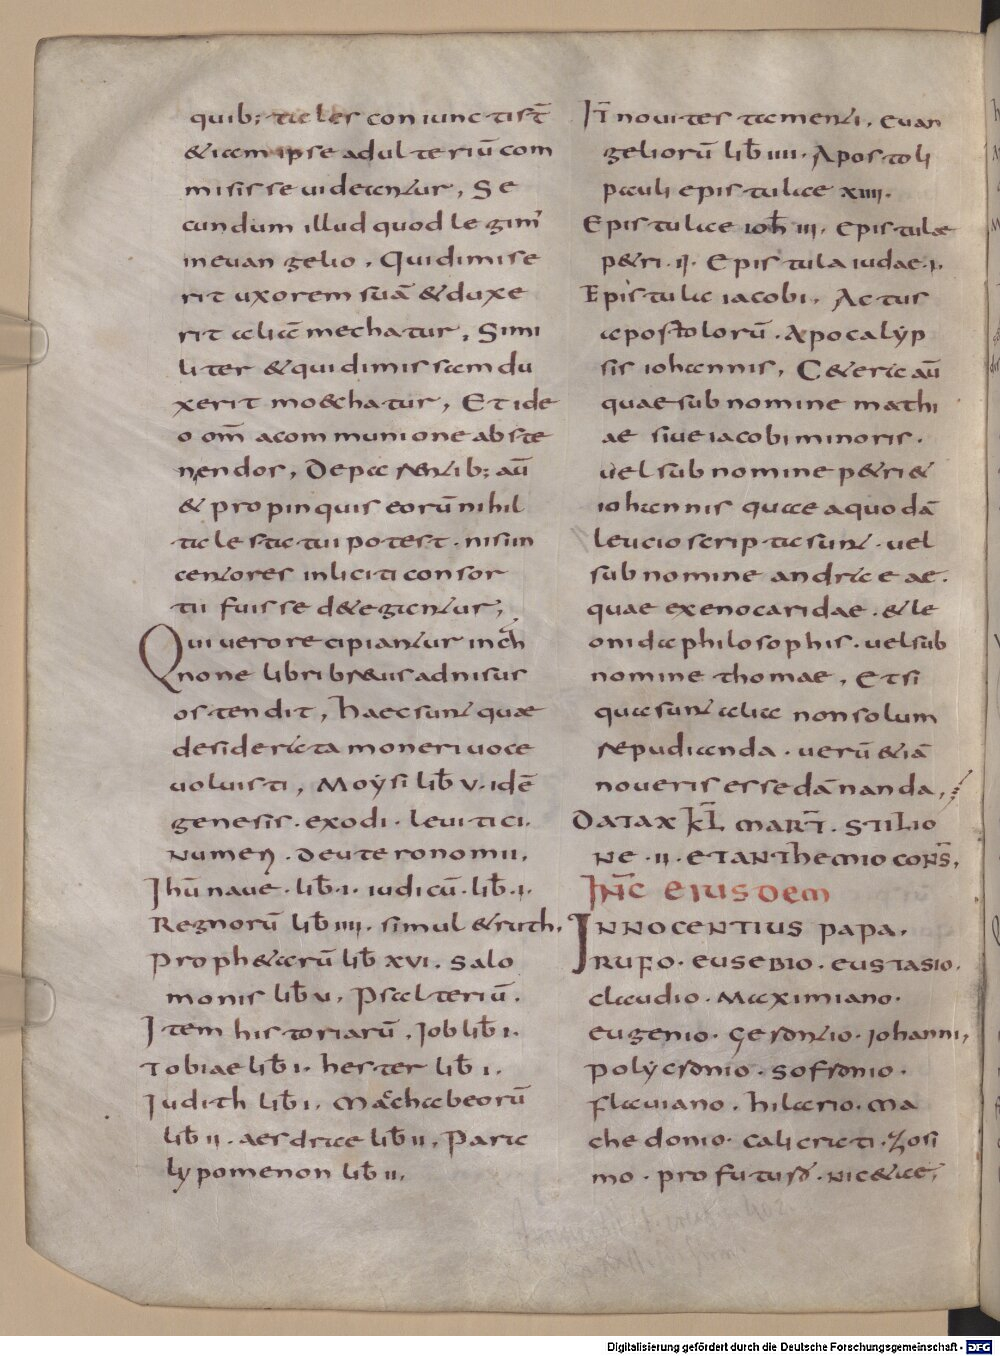 quib; tales coniunctis est̄
& iam ipse adulteriū com
misisse uideantur, Se
cundum illud quod legim'
in euangelio, Qui dimise
rit uxorem suā & duxe
rit aliā mechatur, Simi
liter & qui dimissam du
xerit moechatur, Et ide
o om̄ a communione abste
nendos, De parentib; aū
& propinquis eorū nihil
tale statui potest. nisi in
centores inliciti consor
tii fuisse detegantur;
Qui uero recipiantur in ca
none libri breuis adnisus
ostendit, haec sunt quae
desiderata moneri uoce
uoluisti, Moẏsi lib̄ v. idē
genesis. exodi. leuitici.
numeri. deuteronomii,
Ihū naue. lib̄. i. iudicū. lib̄. i.
Regnorū lib̄ iiii. simul & ruth,
Prophetarū lib̄ xvi. salo
monis lib̄ v, Psalteriū.
Item historiarū, Iob lib̄ i.
Tobiae lib̄ i. hester lib̄ i.
Iudith lib̄ i. Machabeorū
lib̄ ii. aesdrae lib̄ ii, Para
lypomenon lib̄ ii,
It̄ noui testamenti. euan
geliorū lib̄ iiii. Apostoli
pauli epistulae xiiii.
Epistulae ioh̄ iii. epistulae
petri. ii. Epistula iudae. i.
Epistula iacobi, Actus
apostolorū. Apocalẏp
sis iohannis, Cetera aū
quae sub nomine mathi
ae siue iacobi minoris.
uel sub nomine petri &
iohannis quae a quodā
leucio scripta sunt. uel
sub nomine andreae.
quae exenocaridae. & le
onida philosophis. uel sub
nomine thomae, Et si
qua sunt alia non solum
repudianda. uerū etiā
noueris esse dānanda,
Data x kl̄ mart̄. stilio
ne. ii. et anthemio cons̄,
Inc̄ eiusdem
Innocentius papa,
Rufo. eusebio. eustasio.
claudio. maximiano.
eugenio. gerontio. iohanni,
polycronio. sofronio.
flauiano. hilario. ma
chedonio. calicrati. zosi
mo. profuturo. nicetae,
Digitalisierung gefördert durch die Deutsche Forschungsgemeinschaft - DFG